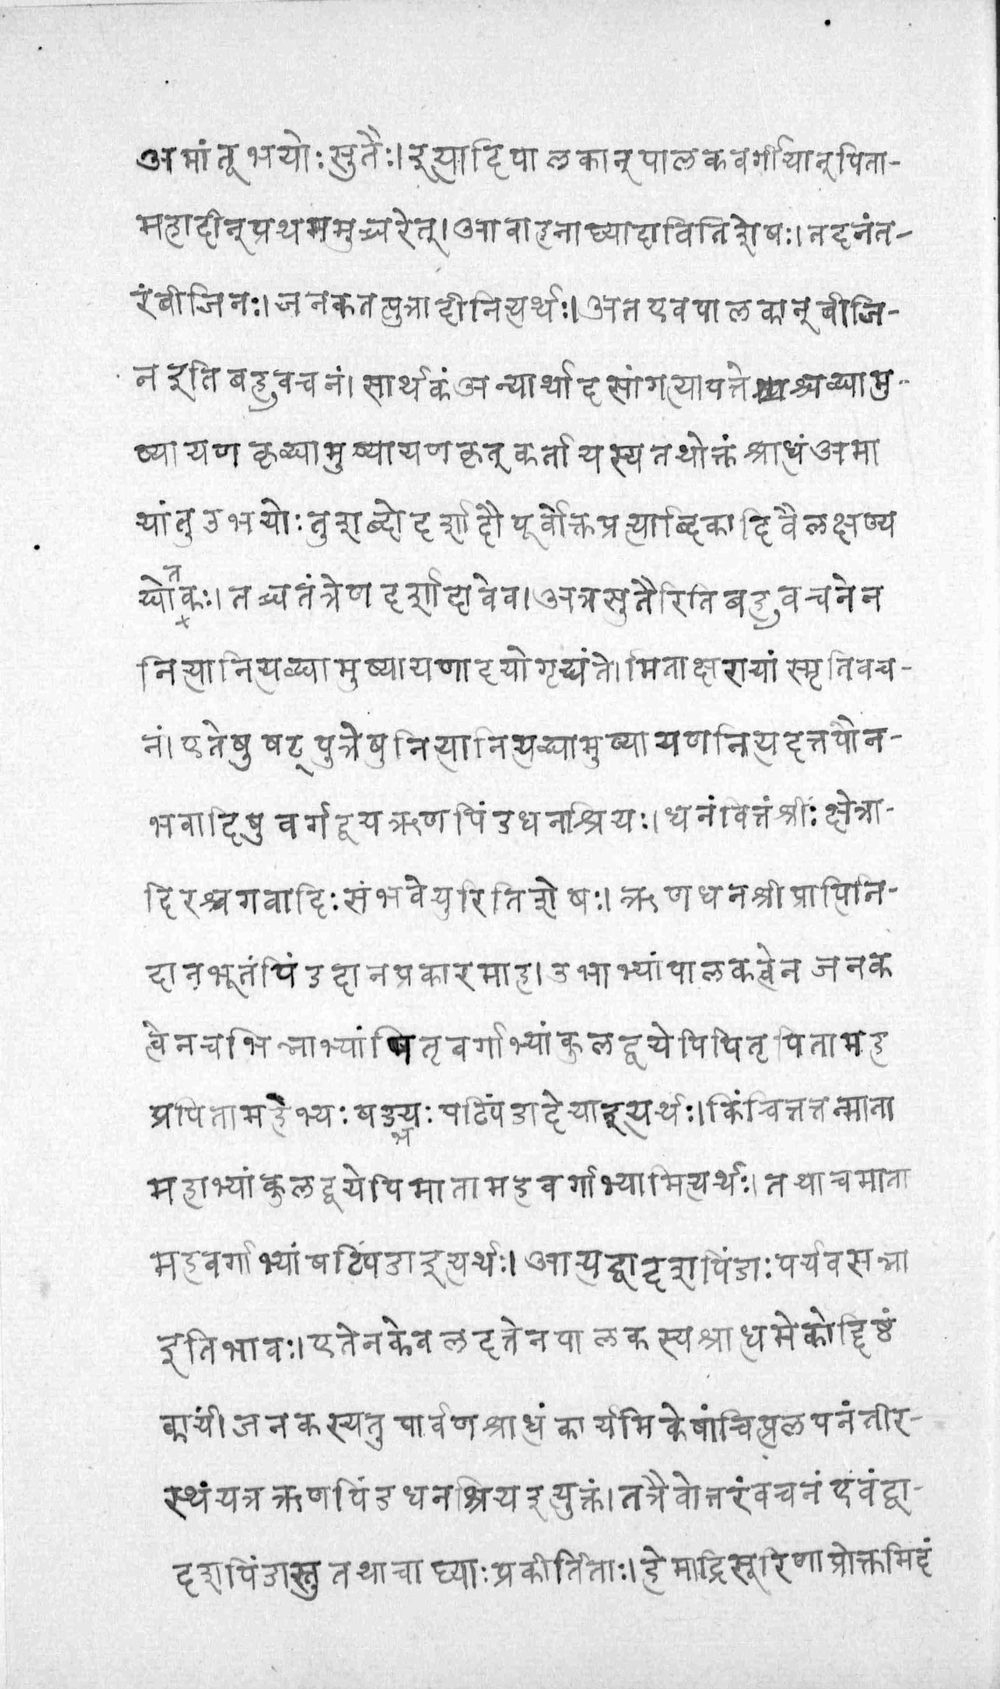 अमांतूभयोः सुतैः। इत्यादिपालकान् पालकवर्गीयान् पिता-
महादीन् प्रथममुच्चरेत्। आवाहनार्घ्यादावितिशेषः। तदनंत-
रंबीजिनः। जनकतत्पुत्रादीनित्यर्थः। अतएवपालकान् बीजि-
न इति बहुवचनं। सार्थकं अन्यार्थादसांगत्यापत्ते श्चद्यामु-
ष्यायणकृद्यामुष्यायणकृत् कर्तायस्यतथोक्तं श्राधं अमा
यांतु उभयोः तुशब्दो दर्शादौ पूर्वोक्तप्रत्याब्दिकादिवैलक्षण्य
द्योतकः। तच्चतंत्रेण दर्शादावेव। अत्रसुतैरितिबहुवचनेन
नित्यानित्यद्यामुष्यायणादयोगृह्यंते। मिताक्षरायां स्मृतिवच-
नं। एतेषु षट् पुत्रेषु नित्यानित्यद्यामुष्यायणनित्यदत्तपौन-
भवादिषु वर्गद्वयऋणपिंडधनश्रियः। धनंवित्तंश्रीः क्षेत्रा-
दिरश्वगवादिः संभवेयुरितिशेषः। ऋणधनश्रीप्राप्तिनि-
दानभूतंपिंडदानप्रकारमाह। उभाभ्यांपालकत्वेन जनक
त्वेनचभिन्नाभ्यांपितृवर्गाभ्यांकुलद्वयेपिपितृपितामह
प्रपितामहेभ्यः षड्भ्यः षट्पिंडादेयाइत्यर्थः। किंचित्तत्तन्माता
महाभ्यांकुलद्वयेपिमातामहवर्गाभ्यामित्यर्थः। तथाचमाता
महवर्गाभ्यांषट्पिंडाइत्यर्थः। आत्यद्वादशपिंडाः पर्यवसन्ना
इतिभावः। एतेनकेवलदत्तेनपालकस्यश्राधमेकोद्दिष्टं
कार्यं। जनकस्यतुपार्वणश्राधंकार्यमिकेषांचित्प्रलपनंतीर-
स्थंयत्रऋणपिंडधनश्रियइत्युक्तं। तत्रैवोत्तरंवचनंएवंद्वा-
दशपिंडास्तुतथाचार्घ्याः प्रकीर्तिताः। हेमाद्रिसूरिणाप्रोक्तमिदं